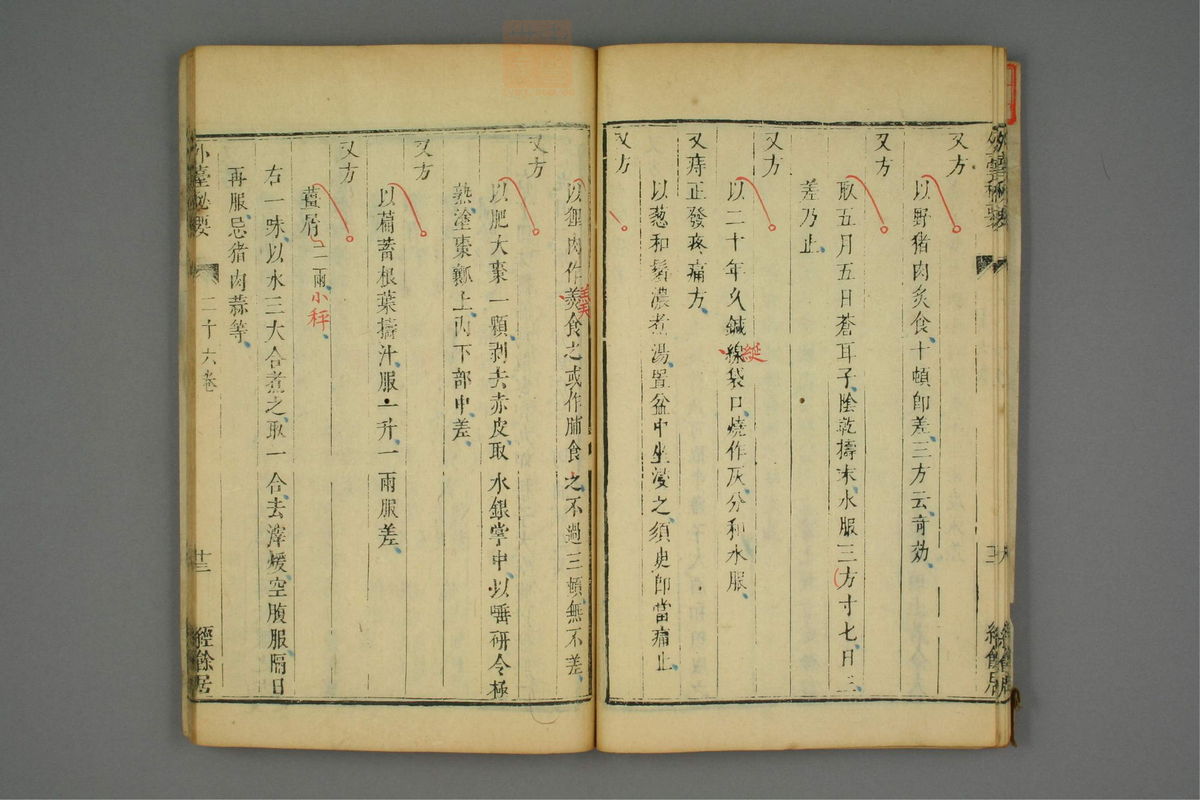 又方
以野猪肉炙食十頓即差三方云奇効
又方
取五月五日蒼耳子陰乾擣末水服三方寸七日三
差乃止
又方
以二十年久鍼線袋口燒作灰分和水服
綖
又痔正發疼痛方
以葱和鬚濃煮湯置盆中坐浸之須臾即當痛止
又方
以狸肉作羮食之或作脯食之不過三頓無不差
羹
又方
以肥大棗一顆剥去赤皮取水銀掌中以唾研令極
熟塗棗瓤上內下部中差
又方
以萹蓄根葉擣汁服一升一兩服差
又方
薑屑二兩
小秤
右一味以水三大合煮之取一合去滓煖空腹服隔日
再服忌猪肉蒜等
外臺秘要
二十六卷
十三
經餘居